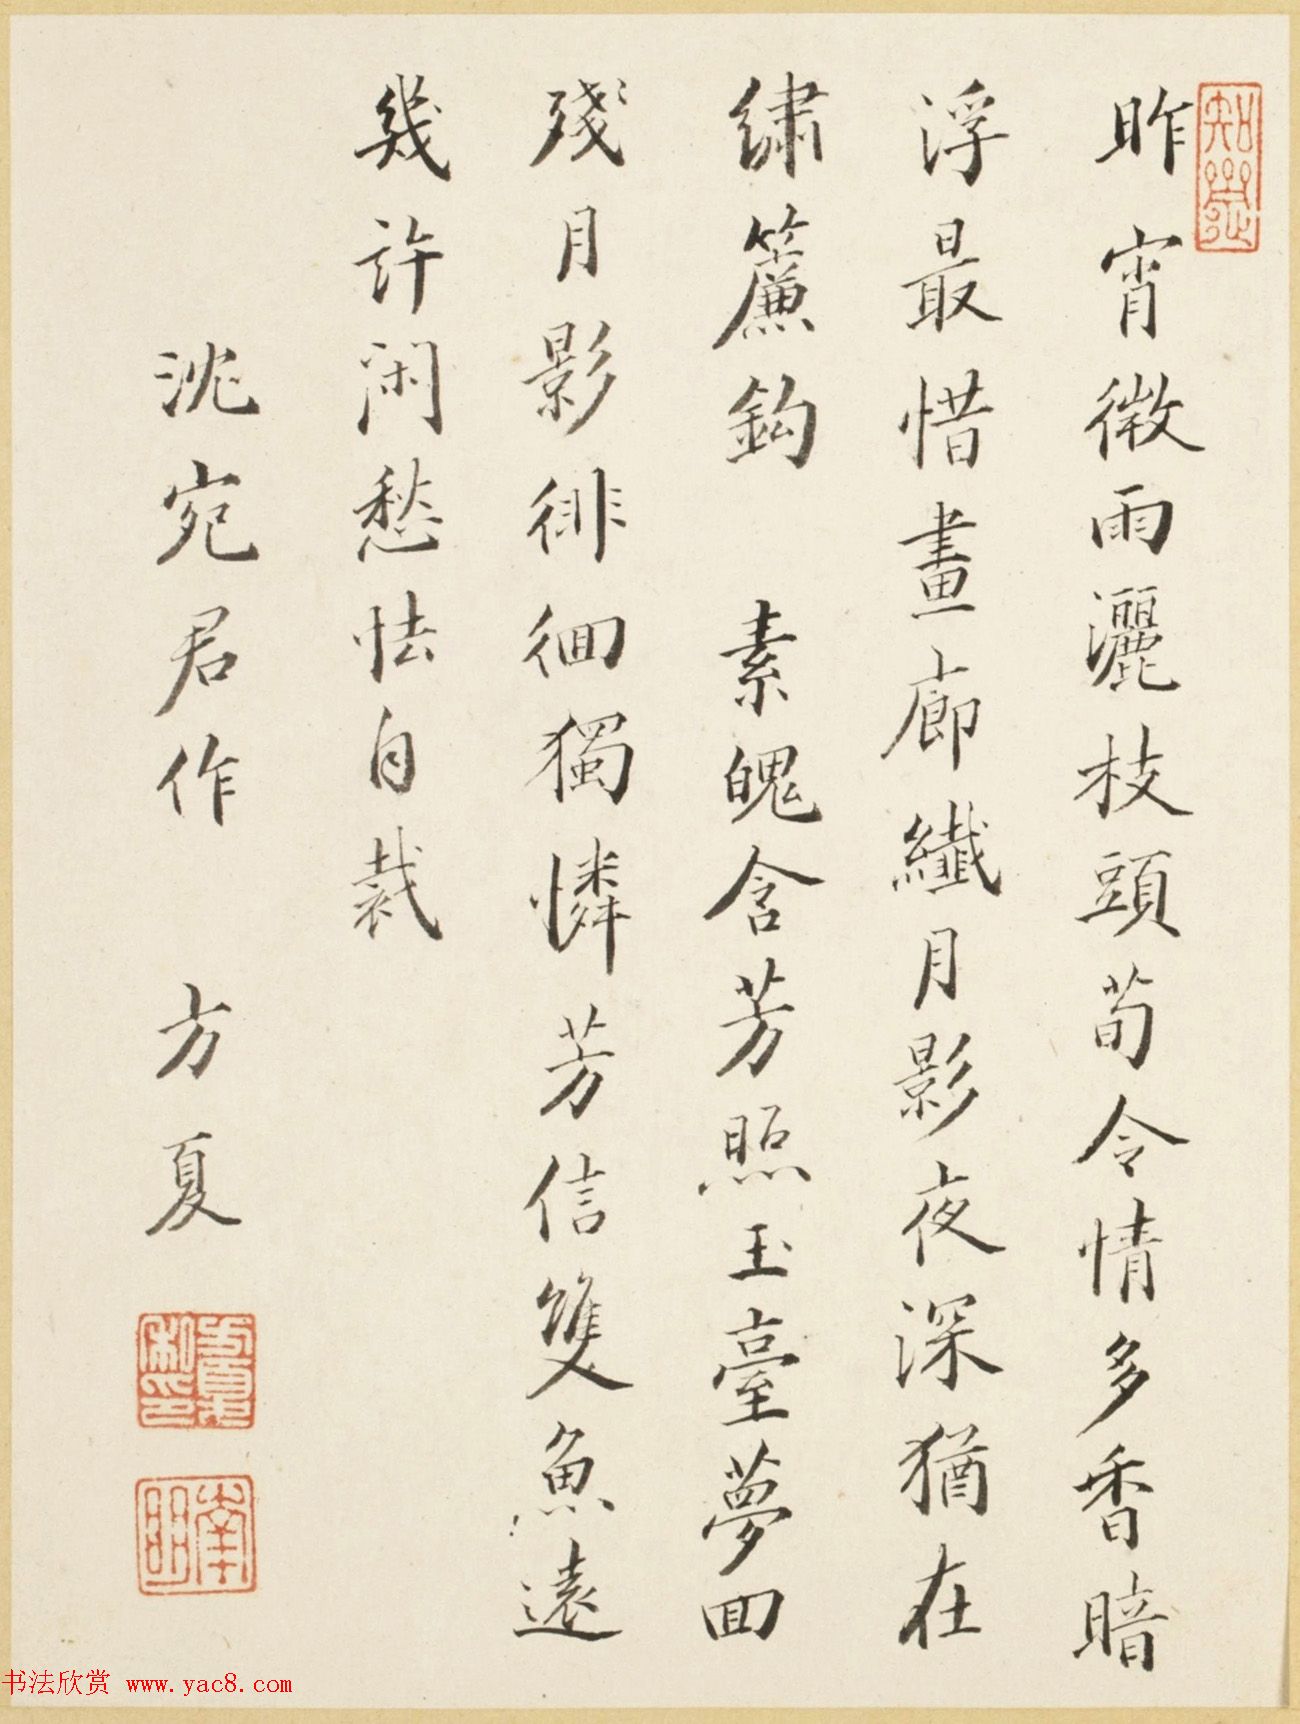 昨宵微雨灑枝頭荀令情多香暗
浮最惜畫廊纖月影夜深猶在
繡簾鈎　素魄含芳照玉臺夢回
殘月影徘徊獨憐芳信雙魚遠
幾許闲愁怯自裁
沈宛君作　方夏
书法欣赏 www.yac8.com